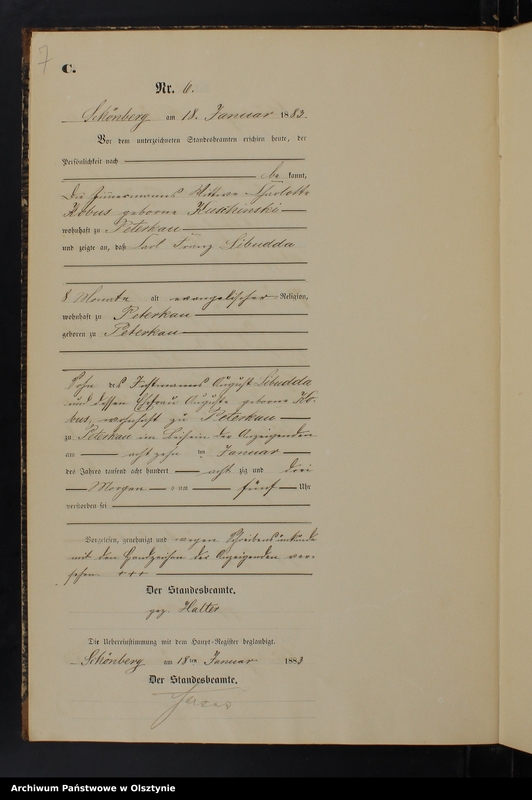 7
C.
Nr. 6.
Schönberg am 18. Januar 1883.
Vor dem unterzeichneten Standesbeamten erschien heute, der
Persönlichkeit nach
be kannt,
die Zimmermanns Wittwe Charlotte
Kobus geborne Kuschinski
wohnhaft zu Peterkau
und zeigte an, daß Carl Franz Libudda
8 Monate alt evangelischer Religion,
wohnhaft zu Peterkau
geboren zu Peterkau
Sohn des August Libudda
und dessen Ehefrau Auguste geborne Ko-
bus, wohnhaft zu Peterkau
zu Peterkau im Beisein der Anzeigenden
am achtzehn ten Januar
des Jahres tausend acht hundert acht zig und drei
Morgen um fünf Uhr
verstorben sei
Vorgelesen, genehmigt und wegen Schreibensunkunde
mit den Handzeichen der Anzeigenden ver-
sehen +++
Der Standesbeamte.
gez. Halter
Die Uebereinstimmung mit dem Haupt-Register beglaubigt.
Schönberg am 18ten Januar 1883
Der Standesbeamte.
Archiwum Państwowe w Olsztynie